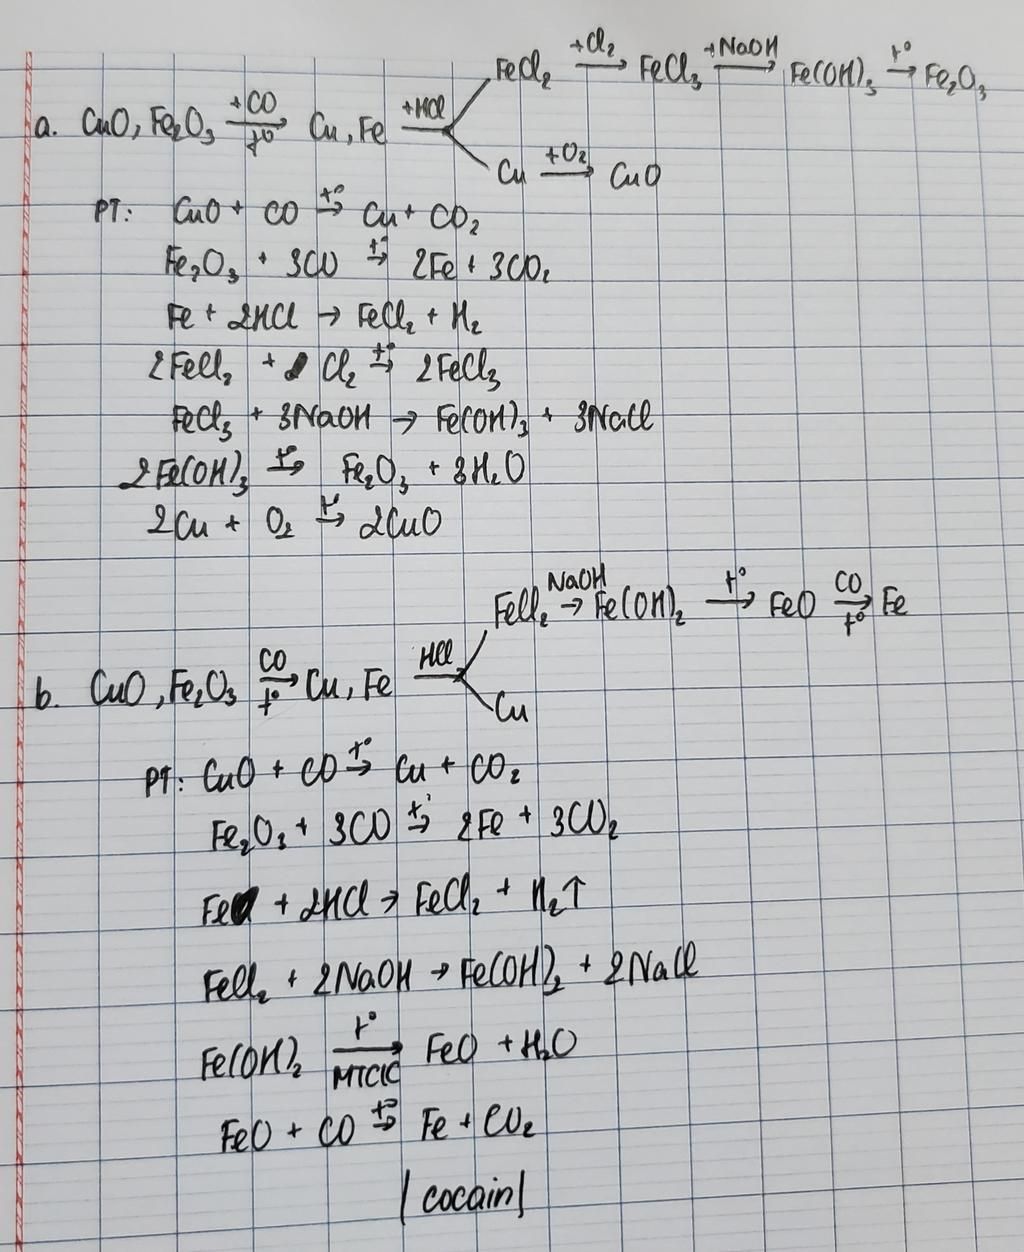 a. CuO, Fe₂O₃ +CO→t° Cu, Fe +HCl→
FeCl₂ +Cl₂→ FeCl₃ +NaOH→ Fe(OH)₃ t°→ Fe₂O₃
Cu +O₂→ CuO
PT: CuO + CO t°→ Cu + CO₂
Fe₂O₃ + 3CO t°→ 2Fe + 3CO₂
Fe + 2HCl → FeCl₂ + H₂
2FeCl₂ + Cl₂ t°→ 2FeCl₃
FeCl₃ + 3NaOH → Fe(OH)₃ + 3NaCl
2Fe(OH)₃ t°→ Fe₂O₃ + 3H₂O
2Cu + O₂ t°→ 2CuO
b. CuO, Fe₂O₃ CO→t° Cu, Fe HCl→
FeCl₂ NaOH→ Fe(OH)₂ t°→ FeO CO→t° Fe
Cu
PT: CuO + CO t°→ Cu + CO₂
Fe₂O₃ + 3CO t°→ 2Fe + 3CO₂
Fe + 2HCl → FeCl₂ + H₂↑
FeCl₂ + 2NaOH → Fe(OH)₂ + 2NaCl
Fe(OH)₂ t°→MTCK FeO + H₂O
FeO + CO t°→ Fe + CO₂
|cocain|